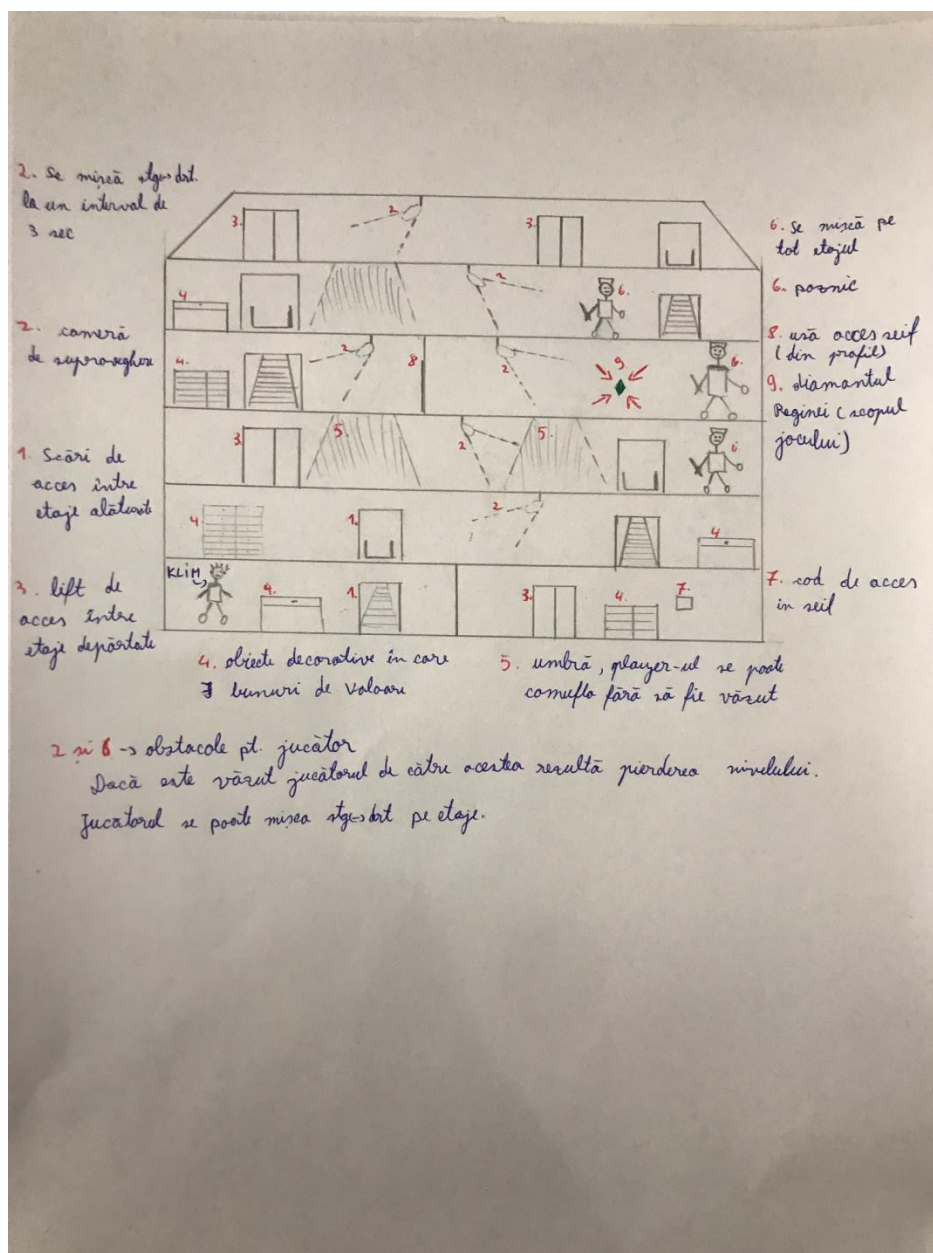 2. Se mișcă stg↔drt.
la un interval de
3 sec
2. cameră
de supraveghere
1. Scări de
acces între
etaje alăturate
3. lift de
acces între
etaje depărtate
3.
2
3.
4
2
6.
4.
2
8
2
9
6.
3.
5.
2
5.
6.
4
1.
2
4
KLIM
4.
1.
3.
4.
7.
6. se mișcă pe
tot etajul
6. paznic
8. ușă acces seif
(din profil)
9. diamantul
Reginei (scopul
jocului)
7. cod de acces
in seif
4. obiecte decorative în care
∃ bunuri de valoare
5. umbră, player-ul se poate
camufla fără să fie văzut
2 și 6 → obstacole pt. jucător
Dacă este văzut jucătorul de către acestea rezultă pierderea nivelului.
Jucătorul se poate mișca stg↔drt pe etaje.